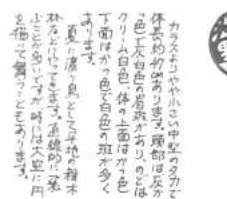 カラスよりやや小さい中型のタカで
体長約47cmあります。頭部は灰か
っ色と灰白色の眉斑があり、のどは
クリーム白色、体の上面はかっ色
下面はかっ色で白色の斑が多く
あります。
夏に渡り鳥として当地の雑木
林などにやってきます。直線的に飛
ぶことが多いですが時には大空に円
を描いて舞うこともあります。